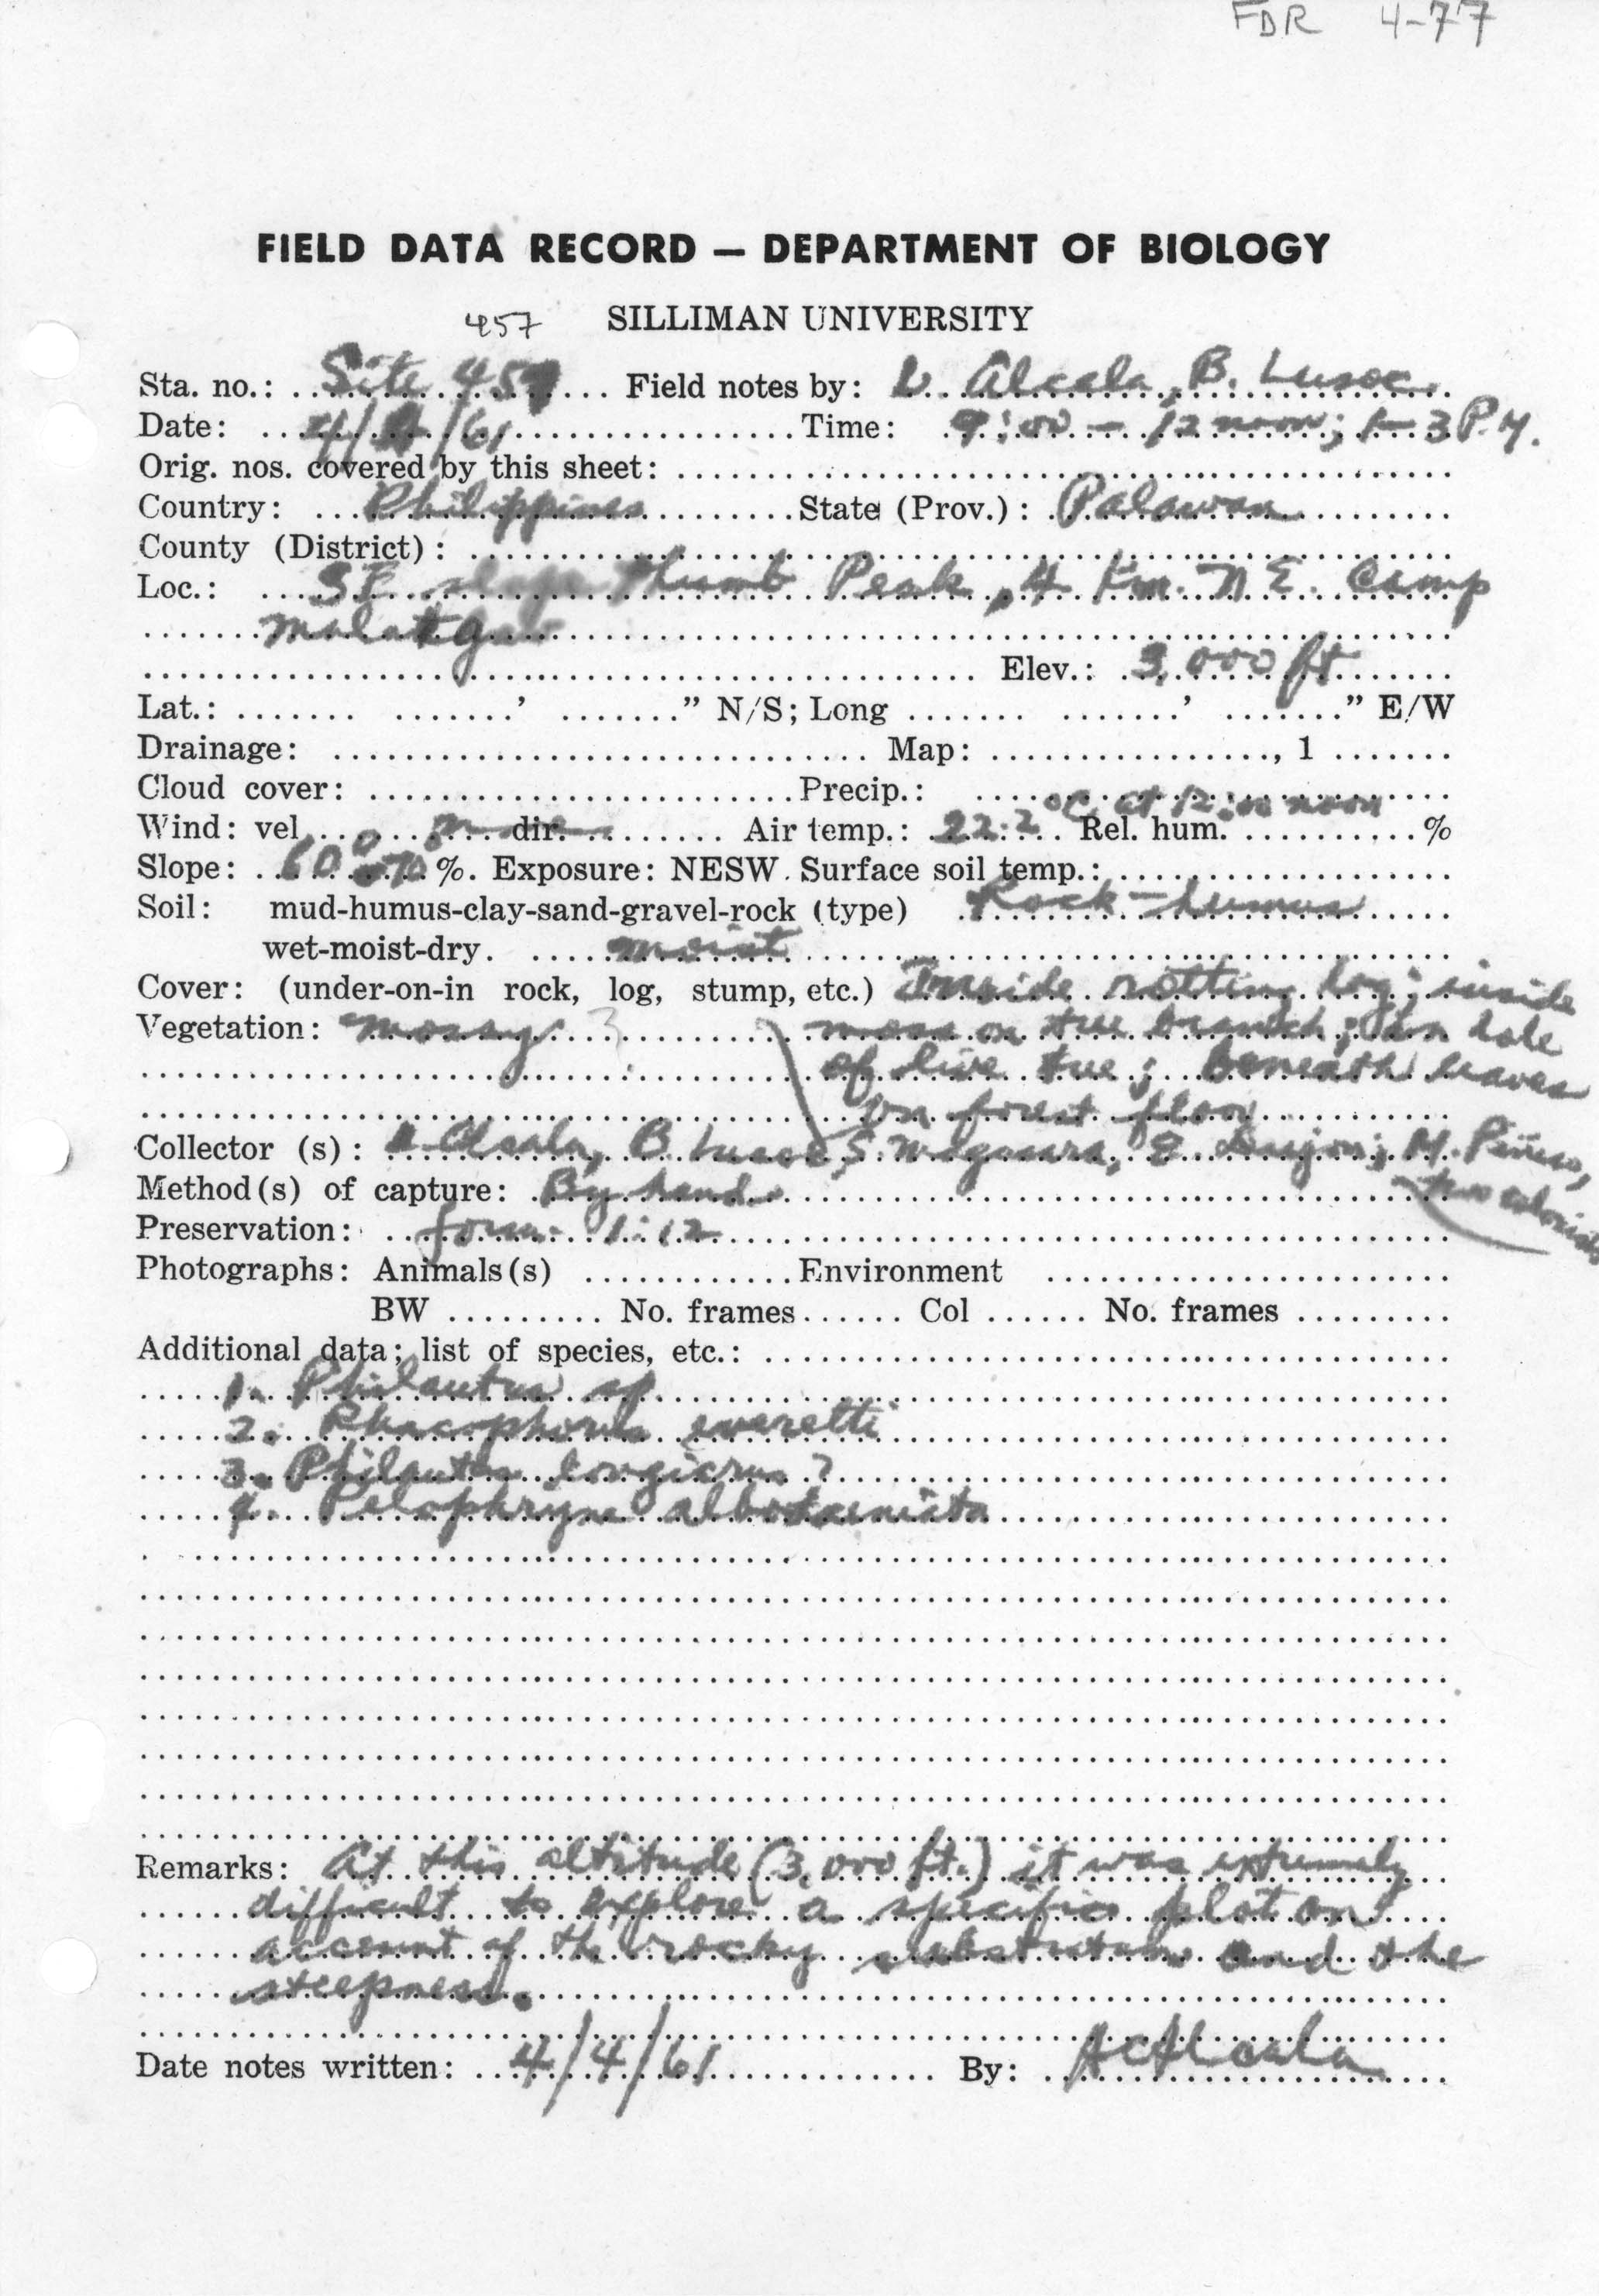 FDR 4-77
FIELD DATA RECORD — DEPARTMENT OF BIOLOGY
457 SILLIMAN UNIVERSITY
Sta. no.: Site 457 Field notes by: L. Alcala, B. Lusoc
Date: 4/ /61 Time: 9:00 - 12 noon; 1-3 P.M.
Orig. nos. covered by this sheet:
Country: Philippines State (Prov.): Palawan
County (District):
Loc.: SE slope Thumb Peak, 4 Km. N E. Camp
Malatgaw
Elev.: 3,000 ft
Lat.: ' " N/S; Long ' " E/W
Drainage: Map: , 1
Cloud cover: Precip.:
Wind: vel. 0 dir. Air temp.: 22.2 °C at 12:00 noon Rel. hum. %
Slope: 60-70 %. Exposure: NESW. Surface soil temp.:
Soil: mud-humus-clay-sand-gravel-rock (type) Rock-humus
wet-moist-dry. moist
Cover: (under-on-in rock, log, stump, etc.) Inside rotting log; inside
Vegetation: mossy moss on tree branch; in hole
of live tree; beneath leaves
on forest floor
Collector (s): Alcala, B. Lusoc, S. Magusara, E. M. Piñero,
two colonists
Method(s) of capture: By hand
Preservation: form. 1:12
Photographs: Animals(s) Environment
BW No. frames Col No. frames
Additional data; list of species, etc.:
1. Philautus sp.
2. Rhacophorus everetti
3. Philautus longicrus ?
4. Pelophryne albotaeniata
Remarks: At this altitude (3,000 ft.) it was extremely
difficult to explore a specific plot on
account of the rocky substratum and the
steepness.
Date notes written: 4/4/61 By: ACAlcala